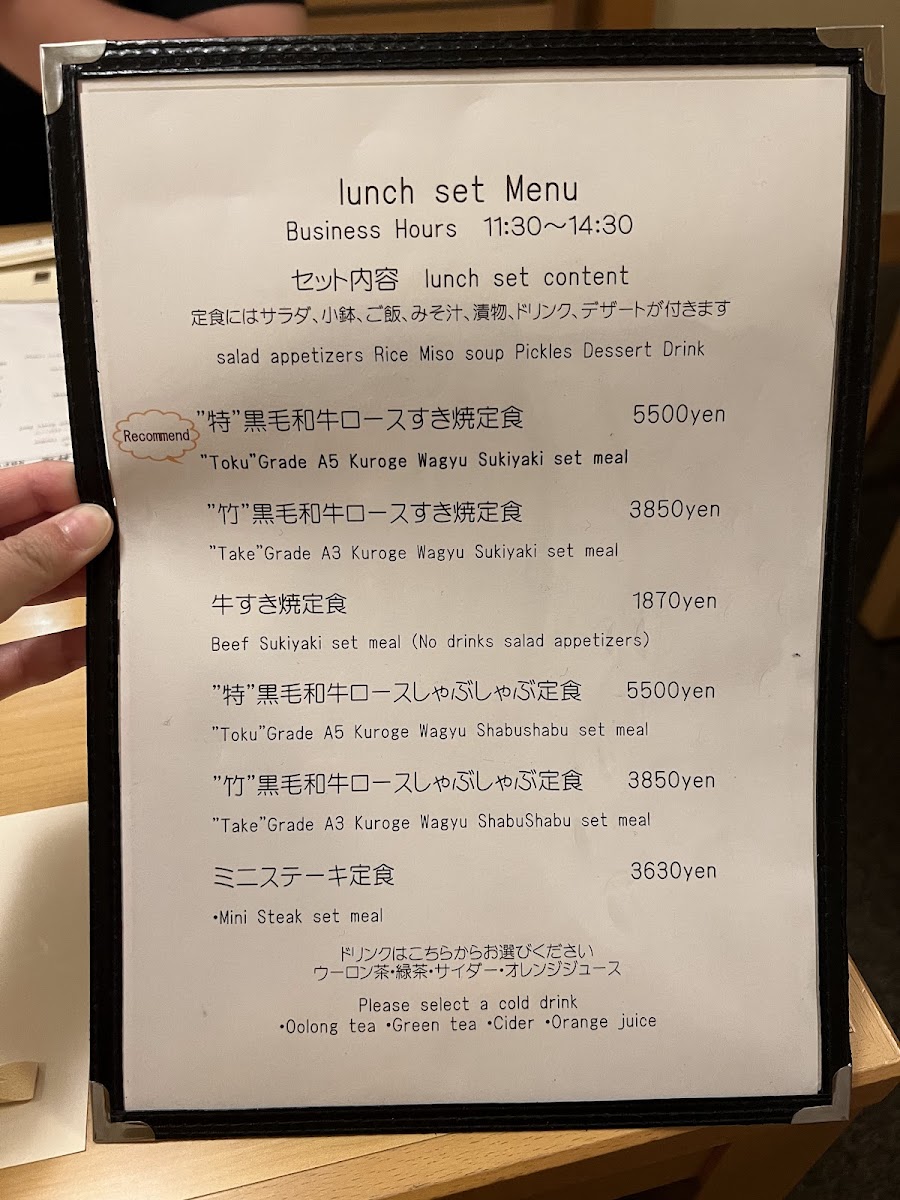 lunch set Menu
Business Hours 11:30～14:30
セット内容 lunch set content
定食にはサラダ、小鉢、ご飯、みそ汁、漬物、ドリンク、デザートが付きます
salad appetizers Rice Miso soup Pickles Dessert Drink
Recommend
"特"黒毛和牛ロースすき焼定食 5500yen
"Toku"Grade A5 Kuroge Wagyu Sukiyaki set meal
"竹"黒毛和牛ロースすき焼定食 3850yen
"Take"Grade A3 Kuroge Wagyu Sukiyaki set meal
牛すき焼定食 1870yen
Beef Sukiyaki set meal (No drinks salad appetizers)
"特"黒毛和牛ロースしゃぶしゃぶ定食 5500yen
"Toku"Grade A5 Kuroge Wagyu Shabushabu set meal
"竹"黒毛和牛ロースしゃぶしゃぶ定食 3850yen
"Take"Grade A3 Kuroge Wagyu ShabuShabu set meal
ミニステーキ定食 3630yen
・Mini Steak set meal
ドリンクはこちらからお選びください
ウーロン茶・緑茶・サイダー・オレンジジュース
Please select a cold drink
・Oolong tea ・Green tea ・Cider ・Orange juice